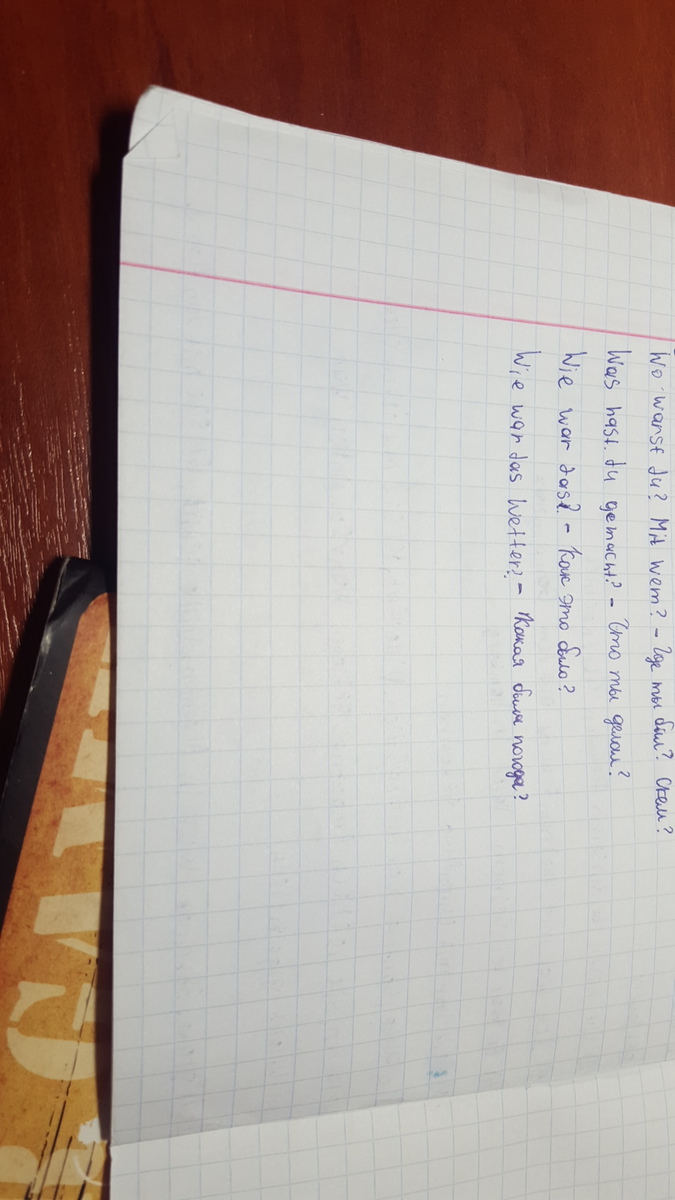 Wo warst du? Mit wem? - Где ты был? С кем?
Was hast du gemacht? - Что ты делал?
Wie war das? - Как это было?
Wie war das Wetter? - Какая была погода?